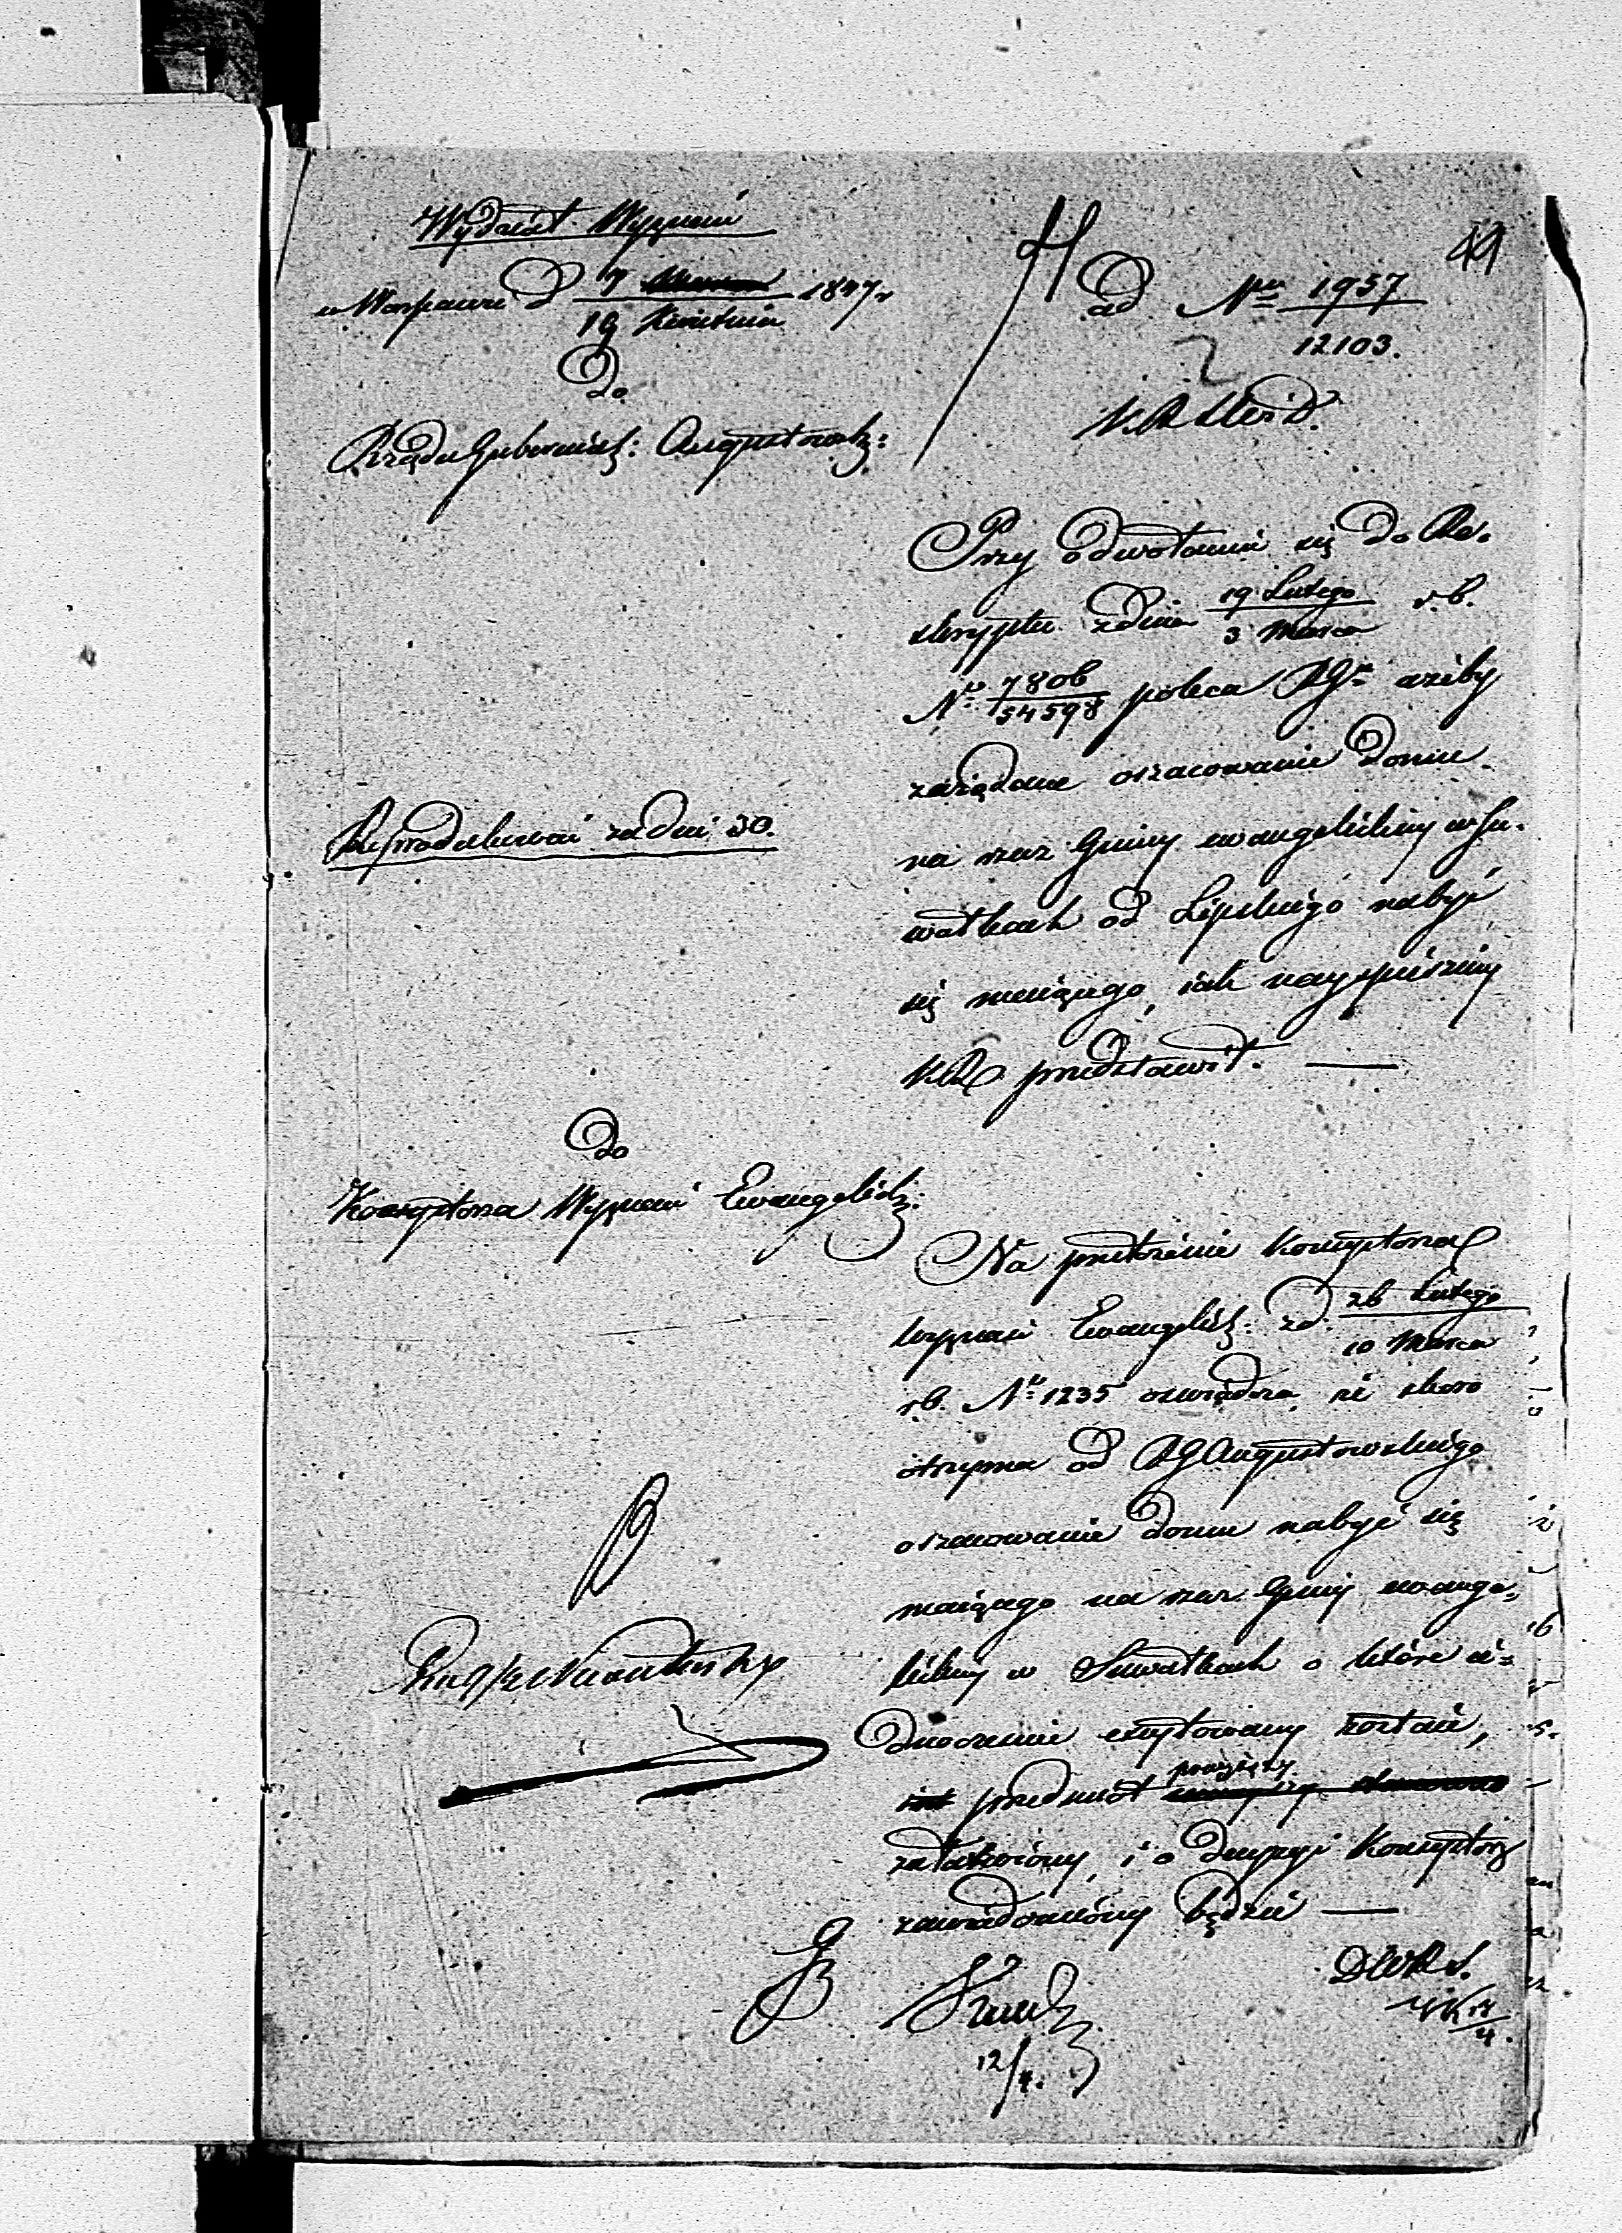 Wydział Wyznań
w Warszawie d 7 / 19 Kwietnia 1847 r
Do
Rządu Gubernial: Augustowsk:
49
ad Nru 1957 / 12103.
K.R.S.W. i D.
Przy odwołaniu się do Re-
skryptu z dnia 19 Lutego / 3 Marca r. b.
No 7806 / 54598 poleca RGu ażeby
zażądane oszacowanie domu
na rzecz Gminy ewangelickiey w Su-
wałkach od Lipskiego nabyć
się maiącego, iak nayspieszniey
KR przedstawił. —
Reproducować za dni 30.
do
Konsystorza Wyznań Ewangelick:
Na przełożenie Konsystorza
Wyznań Ewangelick: z d. 26 Lutego / 10 Marca
r. b. No 1235 oświadcza, że skoro
otrzyma od RG Augustowskiego
oszacowanie domu nabyć się
maiącego na rzecz Gminy ewange-
lickiey w Suwałkach o które ie-
dnocześnie excytowany został,
przedmiot powyższy
załatwiony, i o decyzyi Konsystorz
zawiadomiony będzie —
12/4.